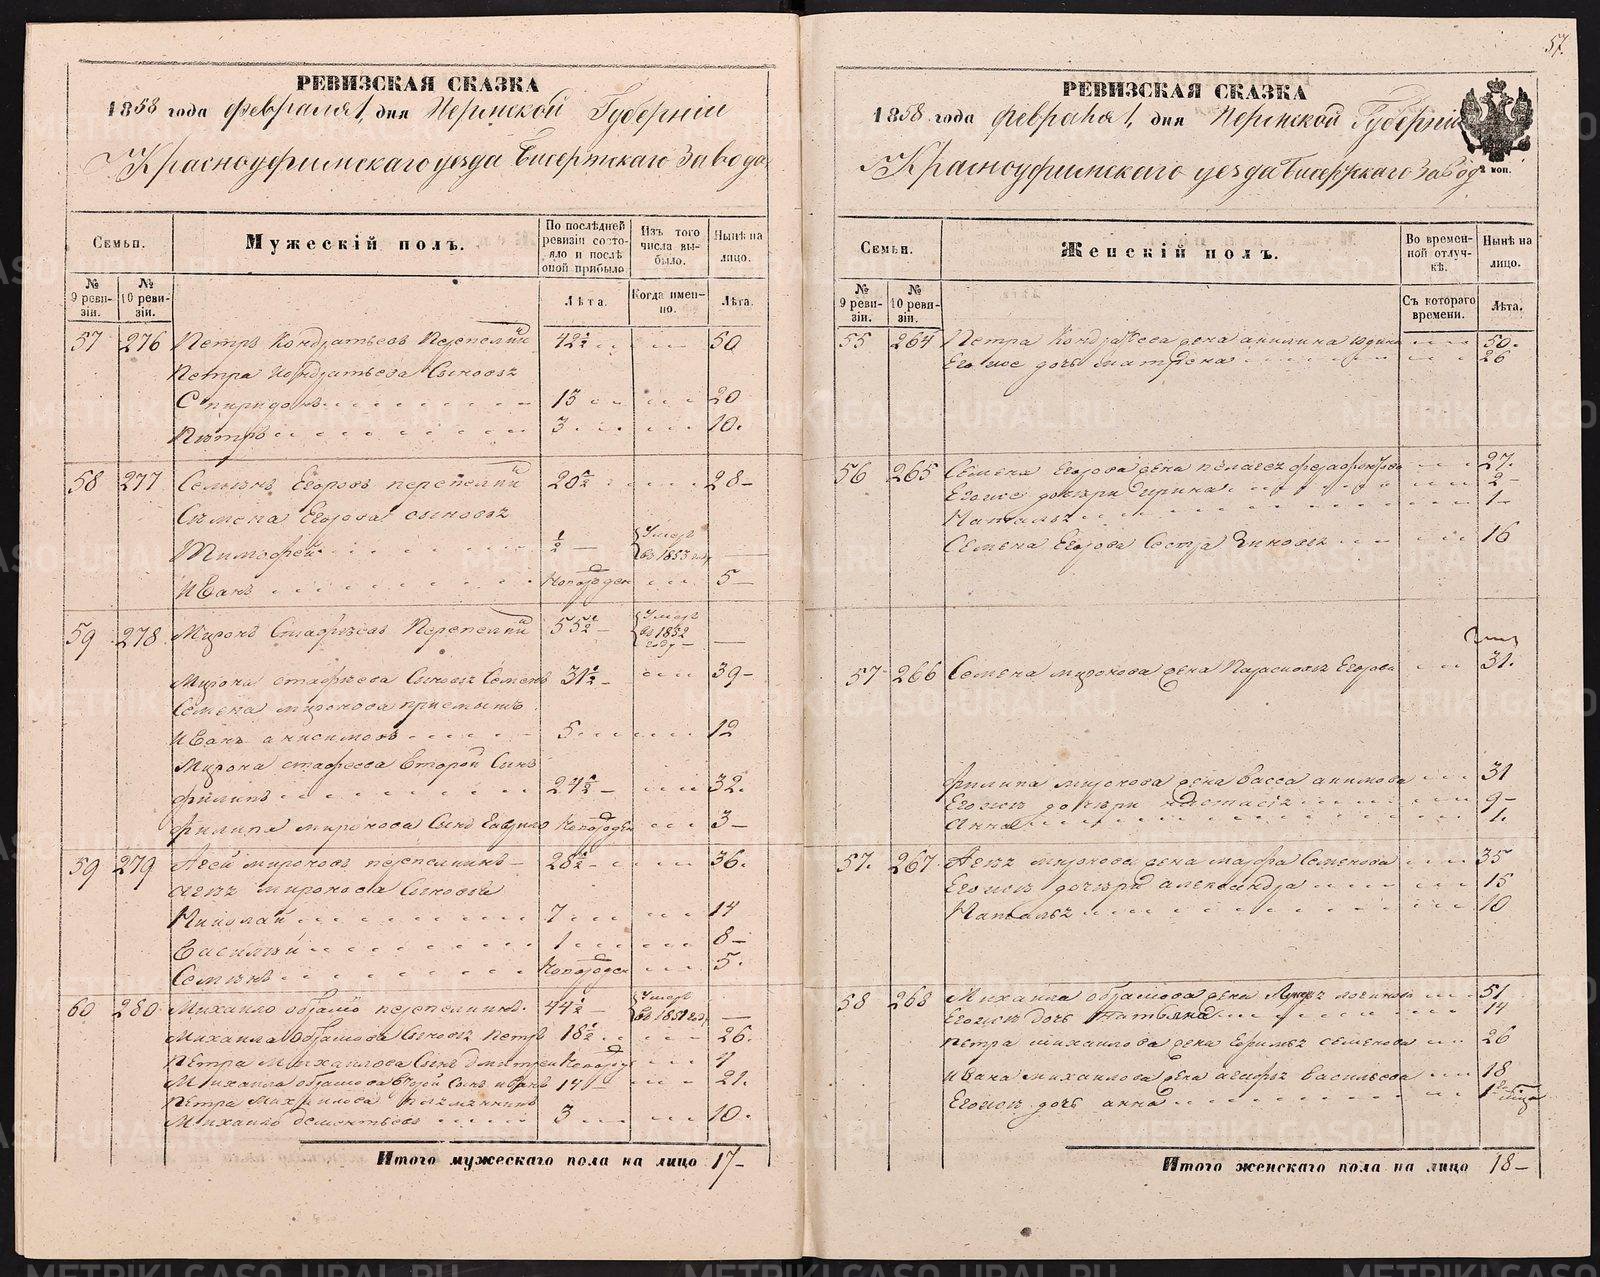 РЕВИЗСКАЯ СКАЗКА
1858 года февраля 1, дня Пермской Губернiи
Красноуфимскаго уезда Бисертскаго Завода
Семьи.
№ 9 ревизiи.
№ 10 ревизiи.
Мужескiй полъ.
По послѣдней ревизiи состояло и послѣ оной прибыло.
Лѣта.
Изъ того числа выбыло.
Когда именно.
Нынѣ на лицо.
Лѣта.
57 276 Петръ Кондратьевъ Перепелкин 42½ 50
Петра Кондратьева Сыновья
Спиридонъ 13 20
Петръ 3 10.
58 277 Семенъ Егоровъ перепелкин 20½ 28
Семена Егорова сыновья
Тимофей ½ Умеръ въ 1853 году
Иванъ Новорожден 5
59 278 Миронъ Стафеевъ Перепелкин 55½ Умеръ въ 1852 году
Мирона стафеева Сыновья Семенъ 31½ 39
Семена миронова приемышъ
Иванъ анисимовъ 5 12
Мирона стафеева второй Сынъ
филипъ 24½ 32.
филипа миронова Сынъ Гаврило Новорожден 3
59 279 Агей мироновъ перепелкинъ 28½ 36.
агея миронова Сыновья
Николай 7 14
Василий 1 8
Семенъ Новорожден 5.
60 280 Михаило абрамовъ перепелкинъ. 44½ Умеръ въ 1851 году
Михаила абрамова Сыновья Петръ 18½ 26.
Петра Михаилова Сынъ дмитрей Новорожд
Михаила абрамова второй Сынъ иванъ 14 21.
Петра Михаилова племянникъ
Михаило дементьевъ 3 10.
Итого мужескаго пола на лицо 17
57.
РЕВИЗСКАЯ СКАЗКА
1858 года февраля 1, дня Пермской Губернiи
Красноуфимскаго уезда Бисертскаго Завод
коп.
Семьи.
№ 9 ревизiи.
№ 10 ревизiи.
Женскiй полъ.
Во временной отлучкѣ.
Съ котораго времени.
Нынѣ на лицо.
Лѣта.
55 264 Петра Кондратьева жена акилина юдина 50.
Его же дочь матрена 26
56 265 Семена Егорова жена пелагея 27.
Его же дочери Ирина 2
Наталья 1
Семена Егорова Сестра Зиновья 16
57 266 Семена миронова жена Парасковья Егорова 31.
филипа миронова жена васса акимова 31
Его же дочери настасья 9
Анна 1.
57. 267. Агея миронова жена марфа Семенова 35
Его же дочери александра 15
Наталья 10
58 268 Михаила абрамова жена логинова 51
Его же дочь татьяна 14
петра михаилова жена Ефимья семенова 26
ивана михаилова жена агафья васильева 18
Его же дочь анна 1
Итого женскаго пола на лицо 18
METRIKI.GASO-URAL.RU